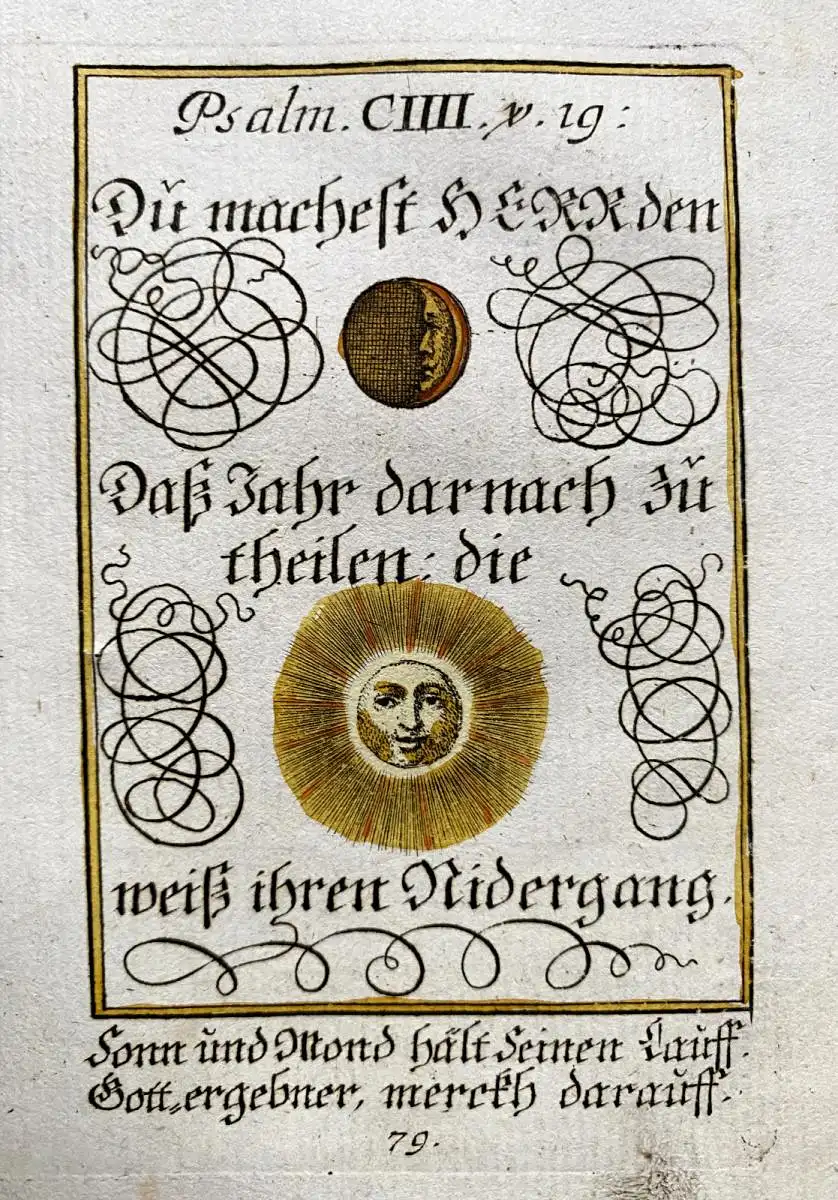 Psalm. CIIII. v. 19:
Dŭ machest HERR den
Daß Jahr darnach zŭ
theilen: die
weiß ihren Nidergang.
Sonn ŭnd Mond hält seinen Lauff.
Gott=ergebner, merckh darauff.
79.